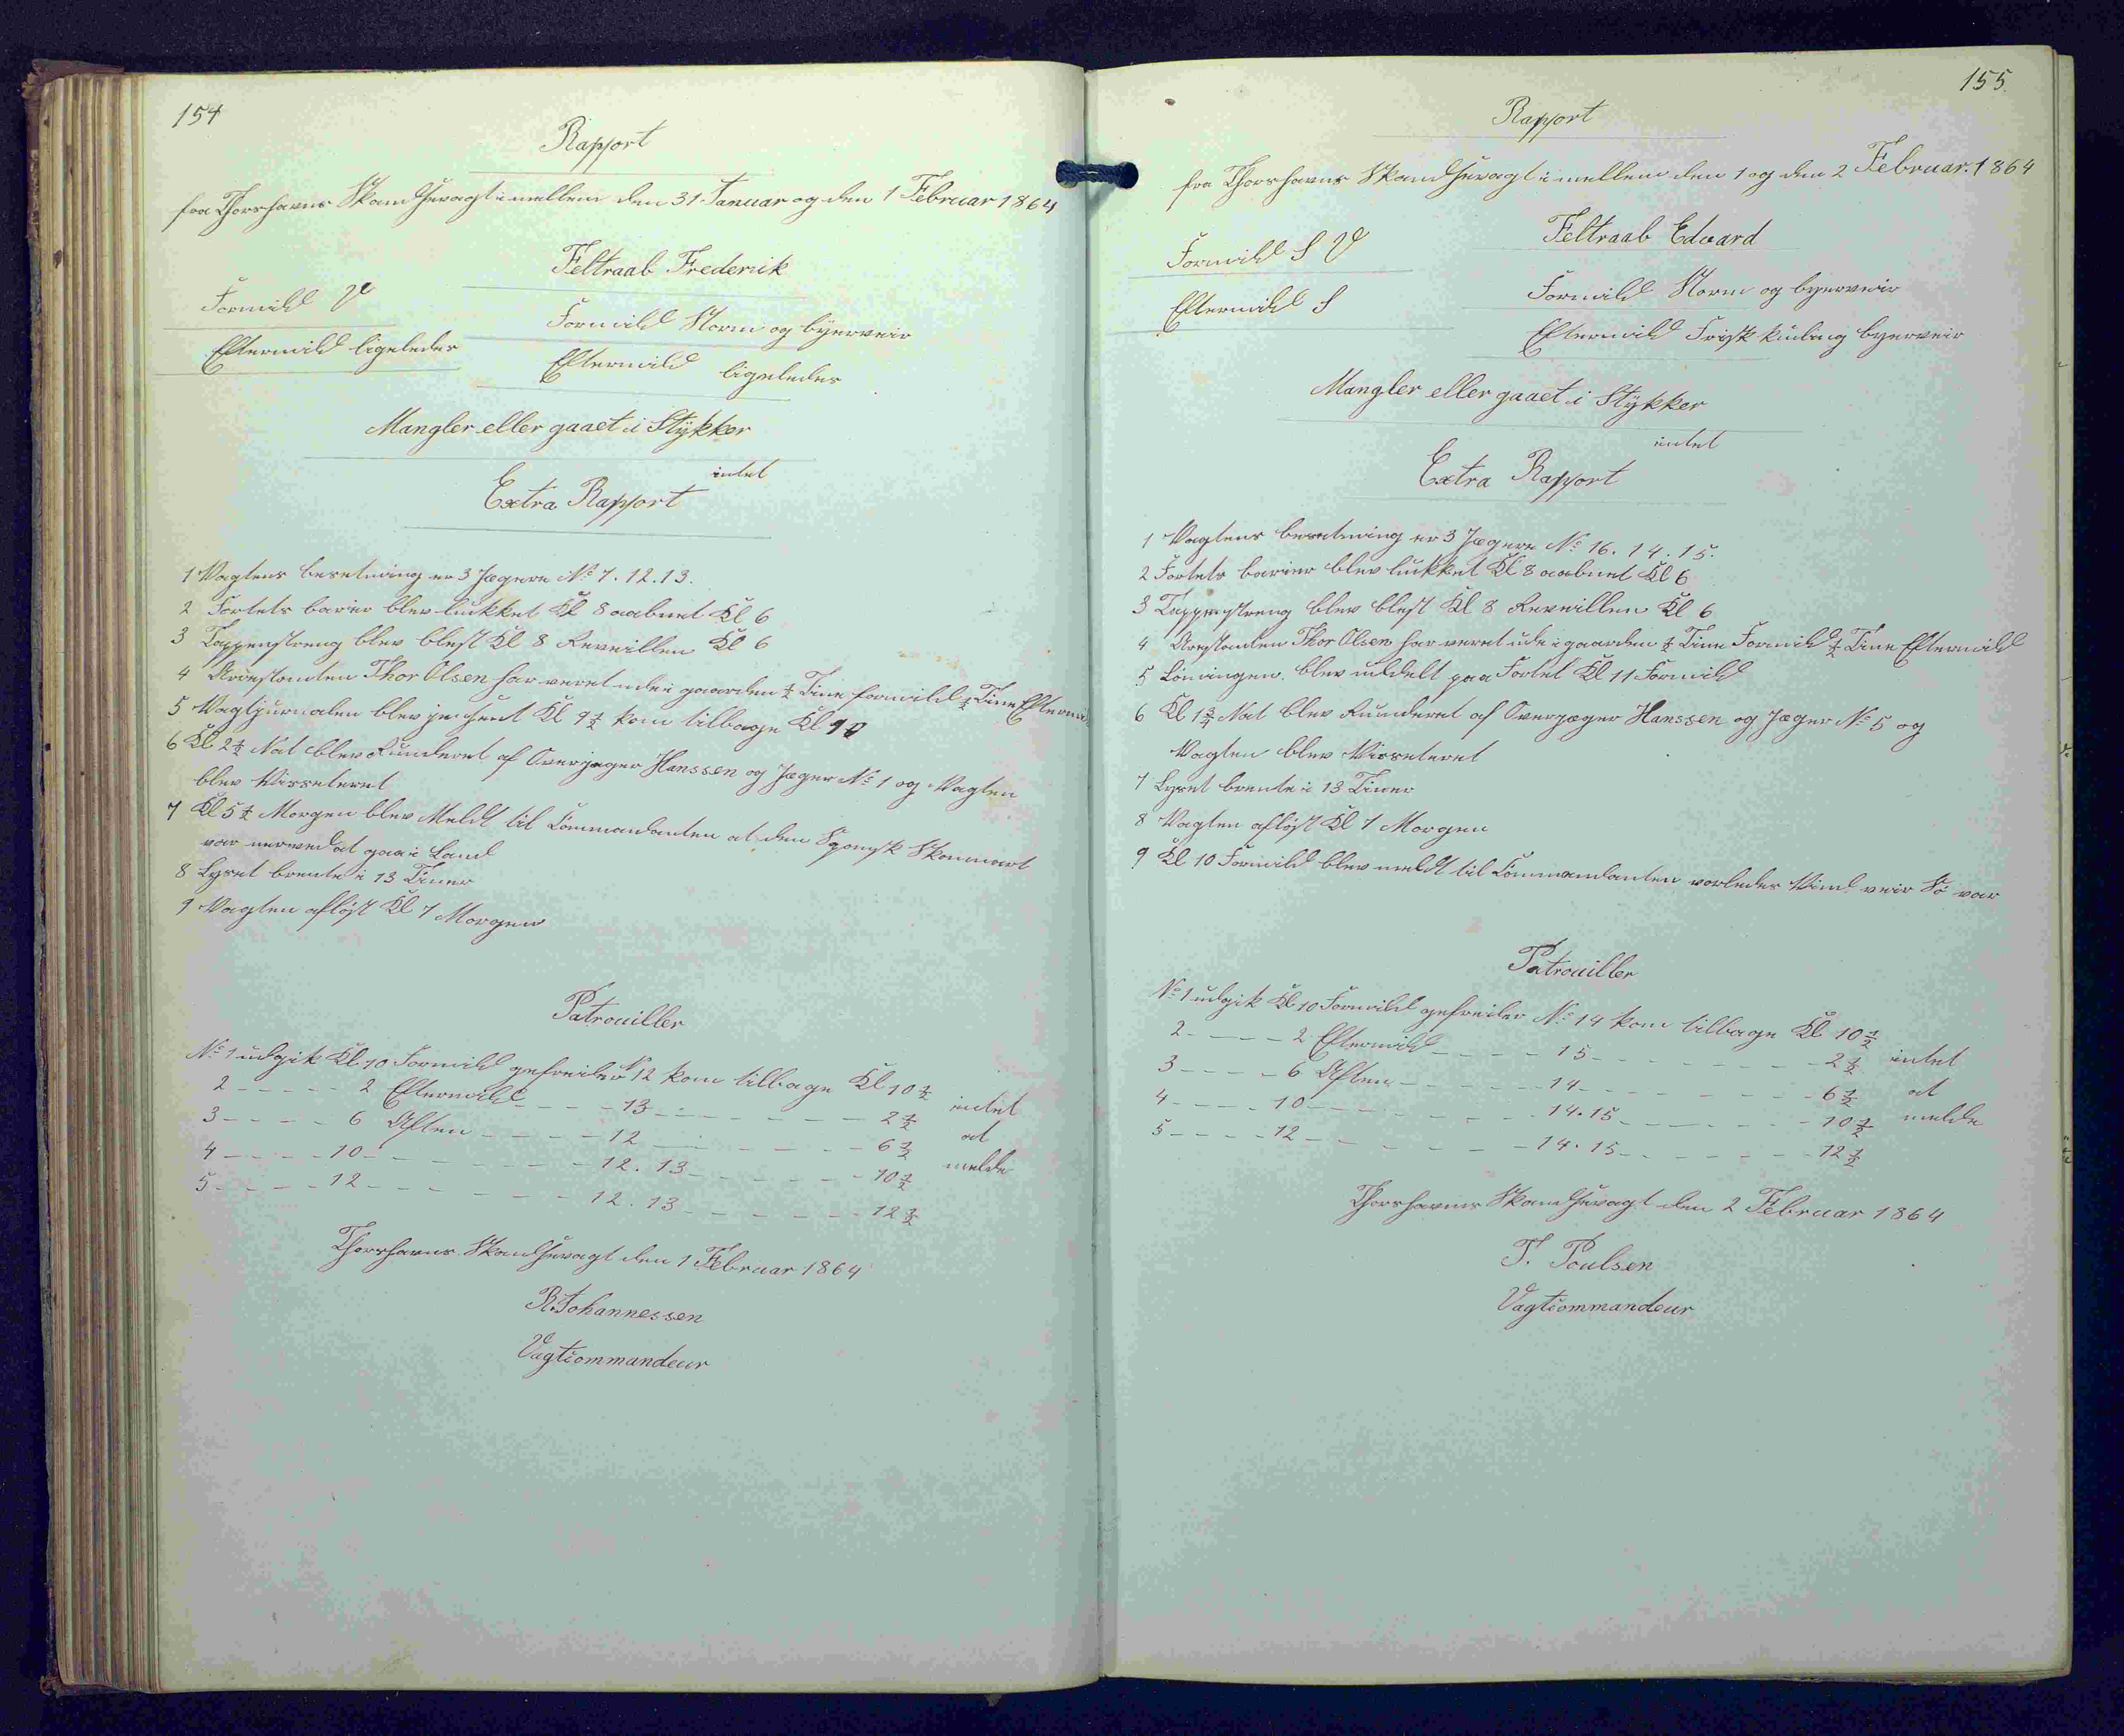 154
Rapport
fra Thorshavns Skandsevagt imellem den 31 Januar og den 1 Februar 1864
Feltraab Frederik
Formidd V
Formidd Storm og byerveir
Eftermidd ligeledes
Eftermidd ligeledes
Mangler eller gaaet i Stykker
intet
Extra Rapport
1 Vagtens besetning er 3 Jægere No 7. 12. 13.
2 Fortets barier blev lukket Kl 8 aabnet Kl 6
3 Tappenstreng blev blest Kl 8 Reveillen Kl 6
4 Arrestanten Thor Olsen har veret ude i gaarden ½ Time formidd ½ Time Eftermid
5 Vagtjurnalen blev hensent Kl 9½ kom tilbage Kl 10
6 Kl 2½ Nat blev Runderet af Overjæger Hanssen og Jæger No 1 og Vagten
blev Visseteret
7 Kl 5½ Morgen blev Meldt til Commandanten at den Spansk Skonnert
var nerved at gaa i Land
8 Lyset brente i 13 Timer
9 Vagten afløst Kl 7 Morgen
Patrouiller
No 1 udgik Kl 10 Formidd gefreider No 12 kom tilbage Kl 10½
2 - - - - - 2 Eftermidd - - - - 13 - - - - - - 2½ intet
3 - - - - - 6 Aften - - - - - 12 - - - - - - 6½ at
4 - - - - - 10 - - - - - - - 12. 13 - - - - - - 10½ melde
5 - - - - - 12 - - - - - - - 12. 13 - - - - - - 12½
Thorshavns Skandsevagt den 1 Februar 1864
R. Johannessen
Vagtcommandeur
155.
Rapport
fra Thorshavns Skandsevagt imellem den 1 og den 2 Februar. 1864
Feltraab Edvard
Formidd S V
Formidd Storm og byerveir
Eftermidd S
Eftermidd Frisk kuling byerveir
Mangler eller gaaet i Stykker
intet
Extra Rapport
1 Vagtens besetning er 3 Jægere No 16. 14. 15.
2 Fortets barier blev lukket Kl 8 aabnet Kl 6
3 Tappenstreng blev blest Kl 8 Reveillen Kl 6
4 Arestanten Thor Olsen har veret ude i gaarden ½ Time Formidd ½ Time Eftermidd
5 Lönningen blev uddelt paa Fortet Kl 11 Formidd
6 Kl 1¾ Nat blev Runderet af Overjæger Hanssen og Jæger No 5 og
Vagten blev Visseteret
7 Lyset brente i 13 Timer
8 Vagten afløst Kl 7 Morgen
9 Kl 10 Formidd blev meldt til Commandanten vorledes Vind veir Sö var
Patrouiller
No 1 udgik Kl 10 Formidd gefreider No 14 kom tilbage Kl 10½
2 - - - - 2 Eftermidd - - - - 15 - - - - - - - 2½ intet
3 - - - - 6 Aften - - - - - 14 - - - - - - - 6½ at
4 - - - - 10 - - - - - - - 14. 15 - - - - - - 10½ melde
5 - - - - 12 - - - - - - - 14. 15 - - - - - - 12½
Thorshavns Skandsevagt den 2 Februar 1864
T. Poulsen
Vagtcommandeur